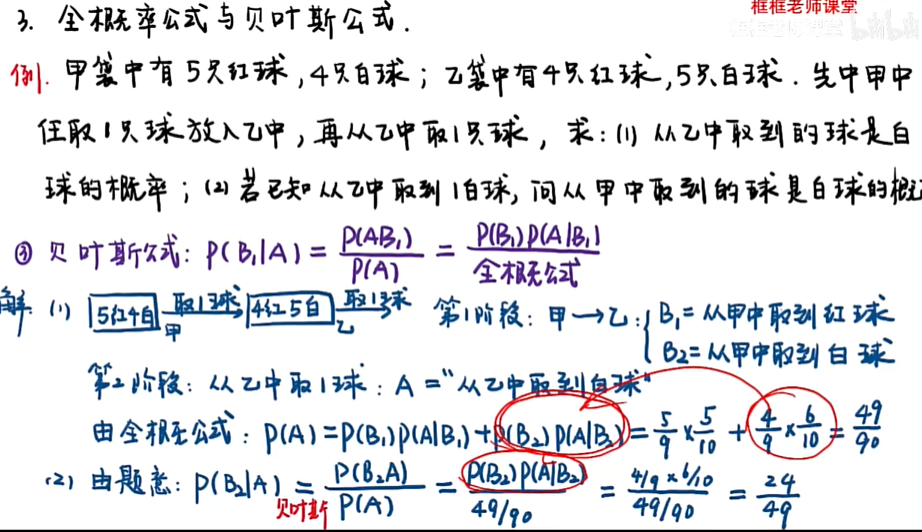 框框老师课堂
3. 全概率公式与贝叶斯公式.
例. 甲袋中有5只红球,4只白球;乙袋中有4只红球,5只白球.先中甲中
任取1只球放入乙中,再从乙中取1只球,求:(1) 从乙中取到的球是白
球的概率;(2) 若已知从乙中取到1白球,问从甲中取到的球是白球的概
③ 贝叶斯公式: P(B₁|A) = P(AB₁)/P(A) = P(B₁)P(A|B₁)/全概公式
解 (1) 5红4白 取1球 甲 4红5白 取1球 乙 第1阶段: 甲→乙: { B₁=从甲中取到红球
B₂=从甲中取到白球
第2阶段: 从乙中取1球: A="从乙中取到白球"
由全概公式: P(A)=P(B₁)P(A|B₁)+P(B₂)P(A|B₂)=5/9×5/10+4/9×6/10=49/90
(2) 由题意: P(B₂|A) = P(B₂A)/P(A) = P(B₂)P(A|B₂)/49/90 = 4/9×6/10/49/90 = 24/49
贝叶斯